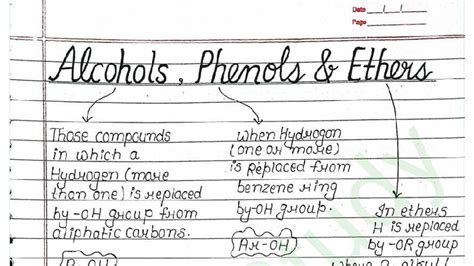 Date / /
Page
Alcohols, Phenols & Ethers
Those compounds
in which a
Hydrogen (more
than one) is replaced
by-OH group from
aliphatic carbons.
R-OH
when Hydrogen
(one or more)
is Replaced from
benzene ring
by-OH group.
Ar-OH
In ethers
H is replaced
by-OR group
where R alkyl/
study